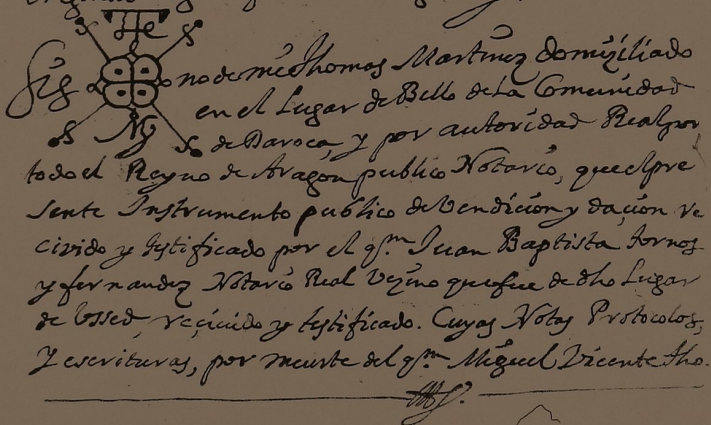 Sig no de mi Thomas Martinez domiziliado
en el Lugar de Bello de la Comunidad
de Daroca, y por autoridad Real por
todo el Reyno de Aragon publico Notario, que el pre
sente Instrumento publico de Vendicion y dacion re
civido y testificado por el qm. Juan Baptista Tornos
y fernandez Notario Real Vezino que fue de dho Lugar
de Vsed, recivido y testificado. Cuyas Notas Protocolos,
Y escrituras, por muerte del qm. Miguel Vicente tho.